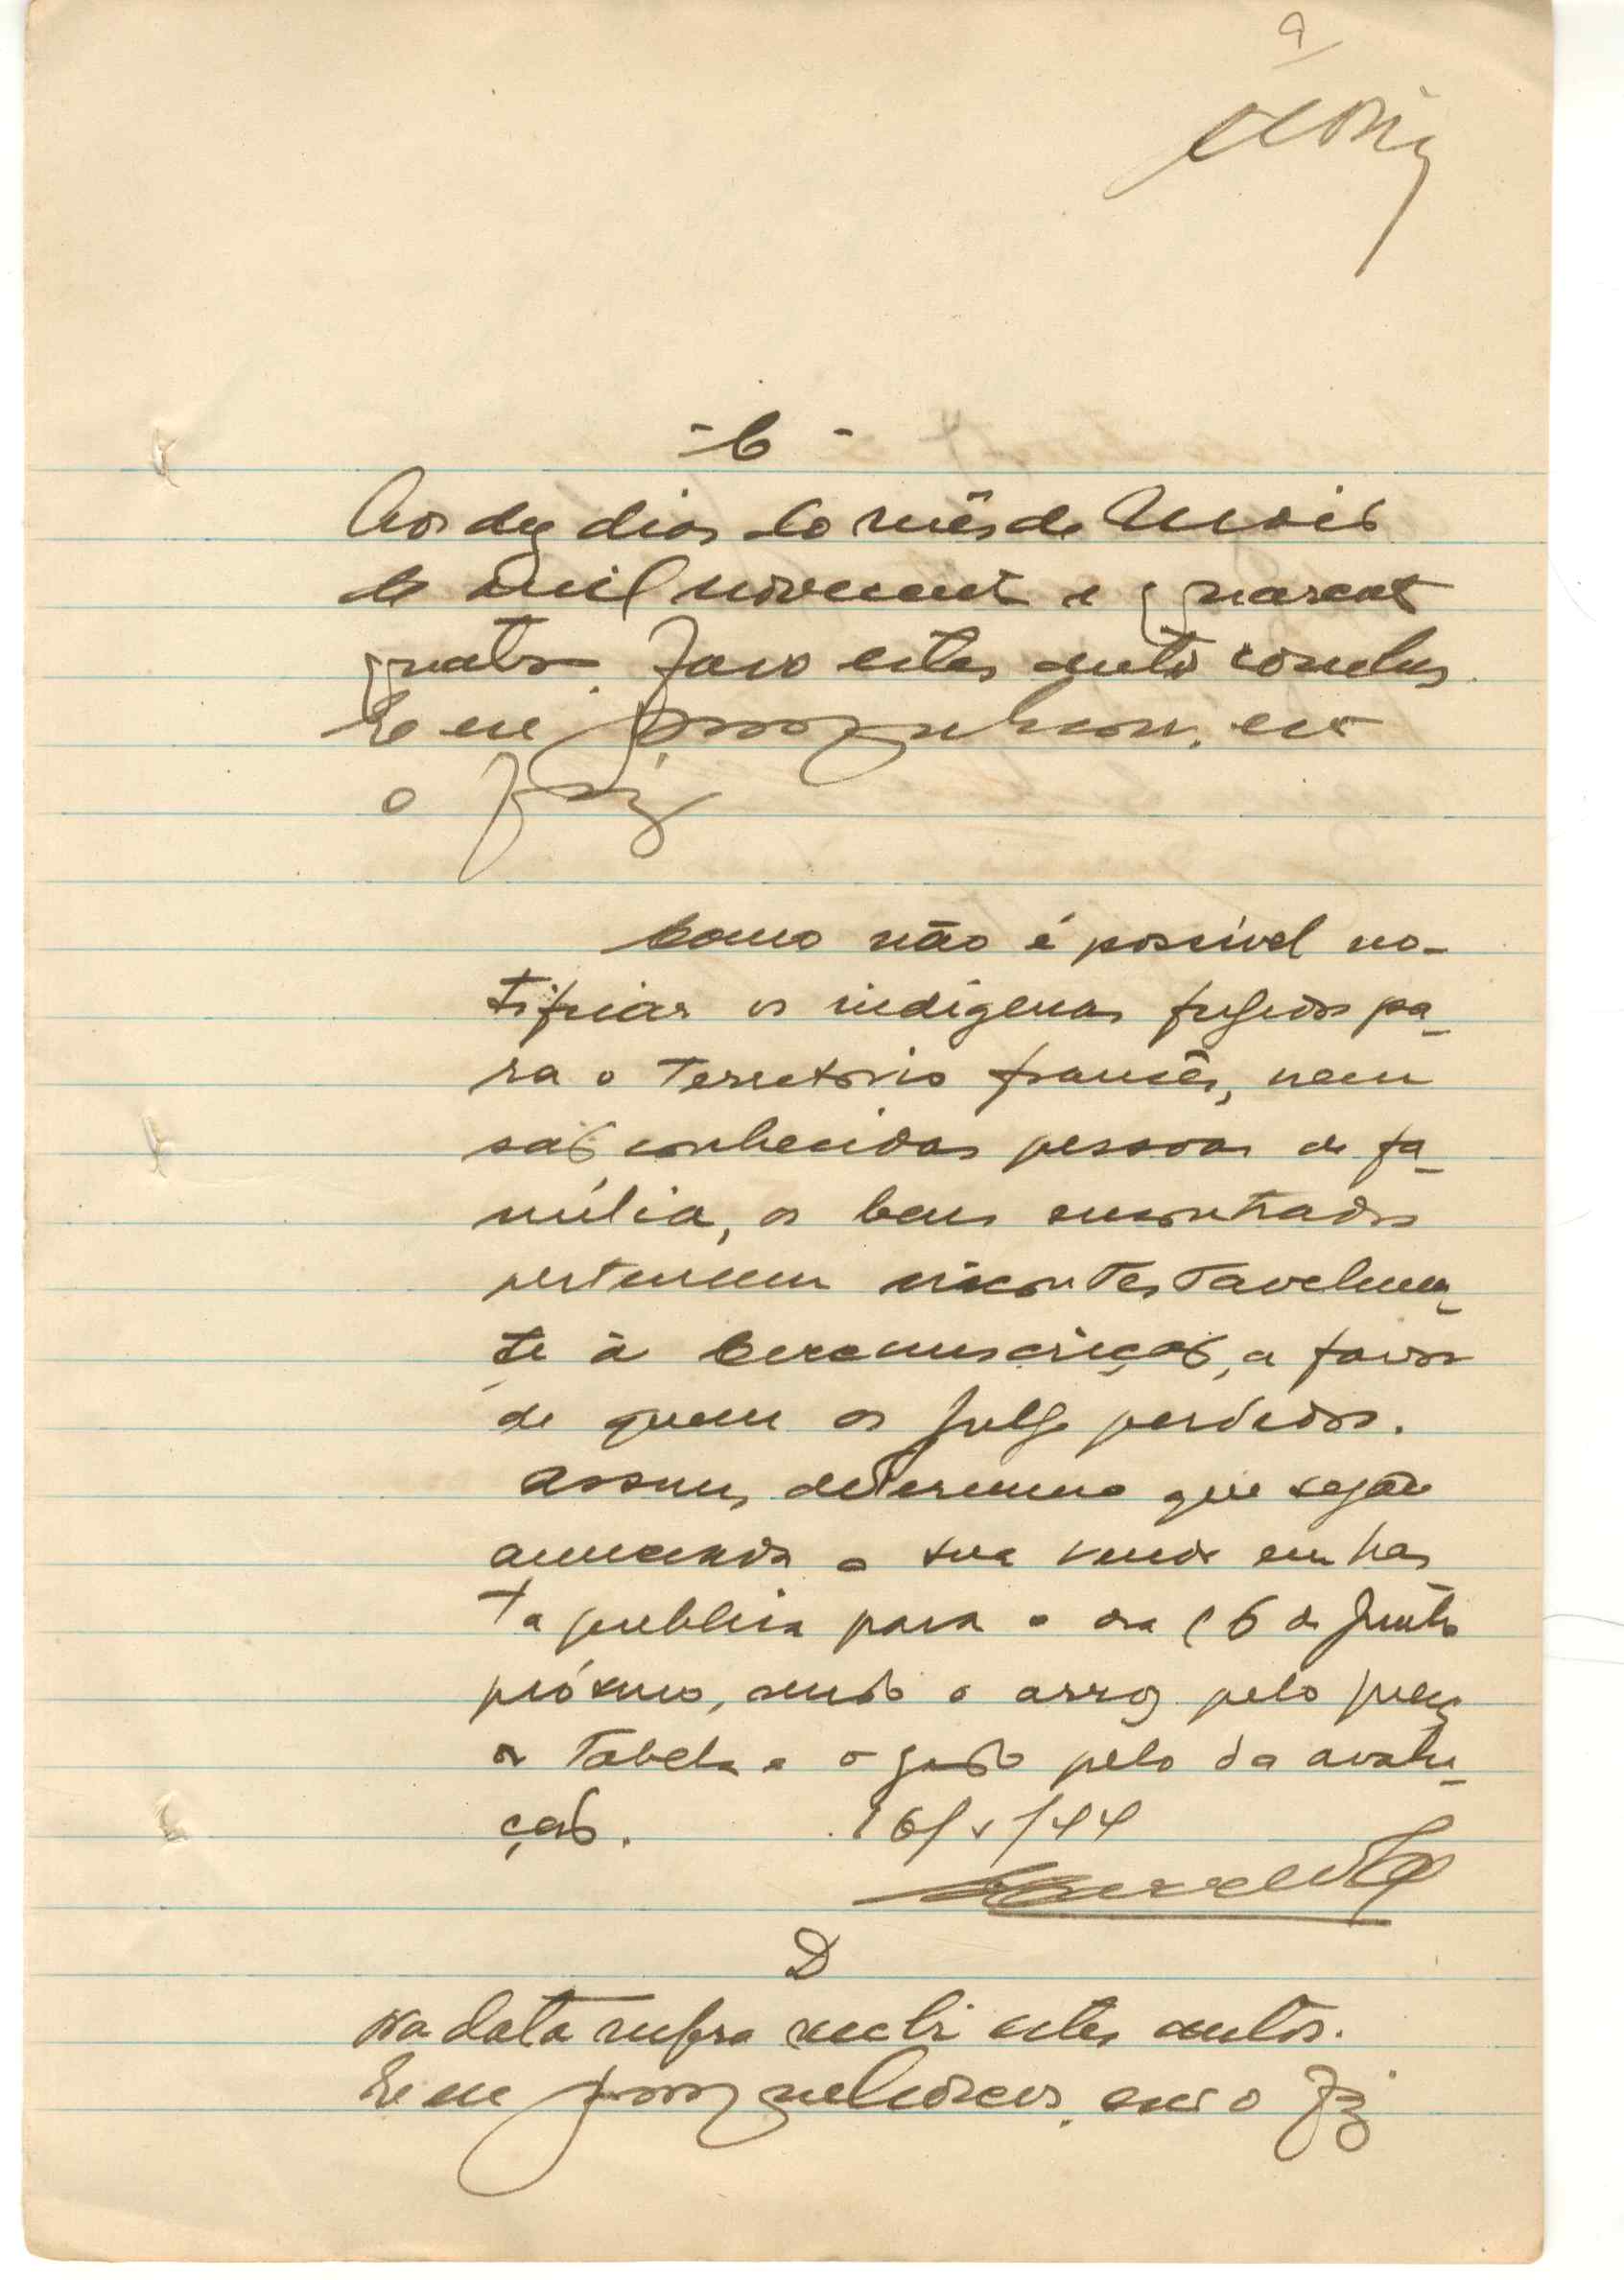 9
- C -
Aos dez dias do mês de Maio
de mil novecentos e quarenta
quatro. Faço estes autos conclusos.
E eu escrivão
o fiz
Como não é possivel no-
tificar os indígenas fugidos pa-
ra o Territorio francês, nem
são conhecidas pessoas de fa-
mília, os bens encontrados
pertencem incontestavelmen-
te à Circunscrição, a favor
de quem os julgo perdidos.
Assim, determino que seja
anunciada a sua venda em has
ta publica para o dia 16 de Junho
próximo, sendo o arroz pelo preço
da Tabela e o gado pelo da avalia-
ção. 16/V/44
D
Na data supra recebi estes autos.
E eu escrivão o fiz